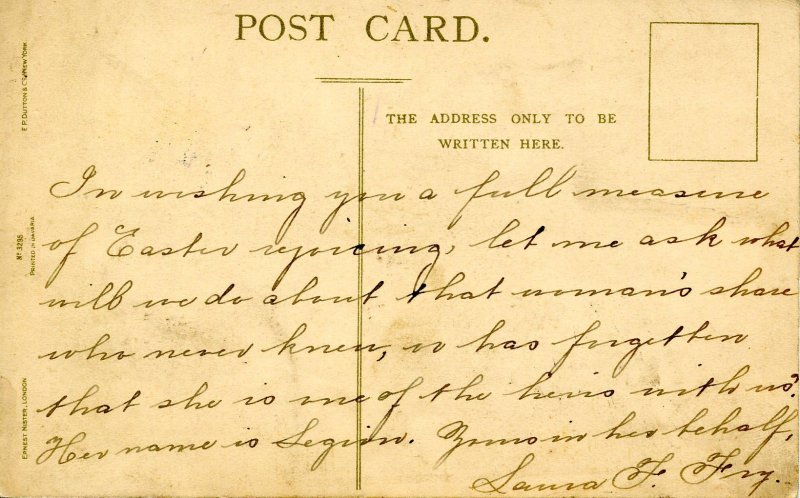 POST CARD.
THE ADDRESS ONLY TO BE
WRITTEN HERE.
E.P. DUTTON & Co. NEW YORK
No 3295
PRINTED IN BAVARIA
ERNEST NISTER, LONDON
In wishing you a full measure
of Easter rejoicing, let me ask what
will we do about that woman's share
who never knew, or has forgotten
that she is one of the heirs with us?
Her name is Legion. Yours in her behalf,
Laura F. Fry.